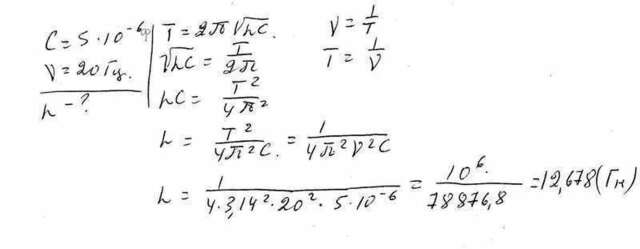 C = 5 · 10⁻⁶ф
ν = 20 Гц.
L - ?
T = 2π√LC.
√LC = T/2π
LC = T²/4π²
L = T²/4π²C. = 1/4π²ν²C
L = 1/4·3,14²·20²·5·10⁻⁶ = 10⁶./78876,8 = 12,678 (Гн)
ν = 1/T
T = 1/ν